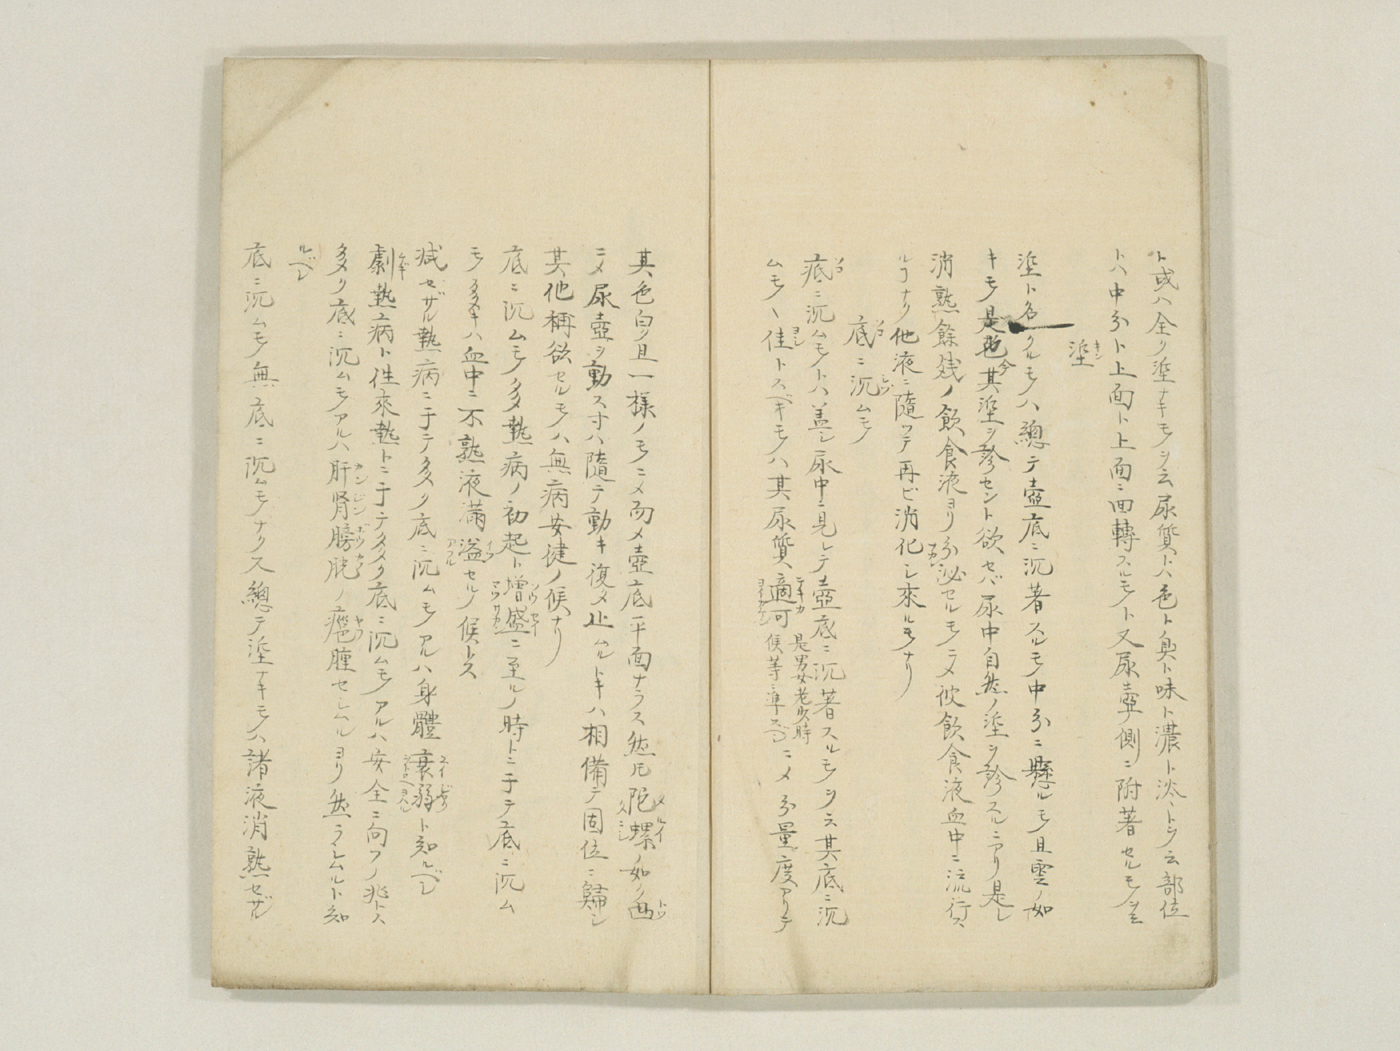 ト或ハ全ク滓ナキモノヲ云尿質トハ色ト臭ト味ト濃ト淡トヲ云部位
トハ中分ト上面ト上面ニ回轉スルモノト又尿壺ノ側ニ附著セルモノヲ云
滓
滓ト名クルモノハ總テ壺底ニ沉著スルモノ中分ニ懸ルモノ且雲ノ如
キモノ是也今其滓ヲ診セント欲セバ尿中自然ノ滓ヲ診スルニアリ是レ
消熟餘残ノ飲食液ヨリ分泌セルモノニメ彼飲食液血中ニ流行ス
ルヿナリ他液ニ隨ツテ再ビ消化シ來ルモノナリ
底ニ沉ムモノ
底ニ沉ムモノトハ蓋シ尿中ニ見レテ壺底ニ沉著スルモノヲ云其底ニ沉
ムモノヽ佳トスベキモノハ其尿質適可是男女老少時候等ニ準スベシニメ分量度アリテ
其色白ク且一樣ノモノニメ而メ壺底平面ナラス然圧陀螺ノ如ク凸
ニメ尿壺ヲ動ス寸ハ隨テ動キ復タ止ムルトキハ相備テ固位ニ歸シ
其他稱欲セルモノハ無病安健ノ候ナリ
底ニ沉ムモノ多ク熱病ノ初起ト増盛ニ至ルノ時トニ于テ底ニ沉ム
モノ多キハ血中ニ不熟液滿溢セルノ候トス
減ゼザル熱病ニ于テ多ク底ニ沉ムモノアルハ身體衰弱ト知ルベシ
劇熱病ト徃來熱トニ于テ多ク底ニ沉ムモノアルハ安全ニ向フノ兆トス
多メリ底ニ沉ムモノアルハ肝腎膀胱ノ瘧腫セシムルヨリ然ラシムルト知
ルベシ
底ニ沉ムモノ無底ニ沉ムモノナクス總テ滓ナキモノハ諸液消熟セザル